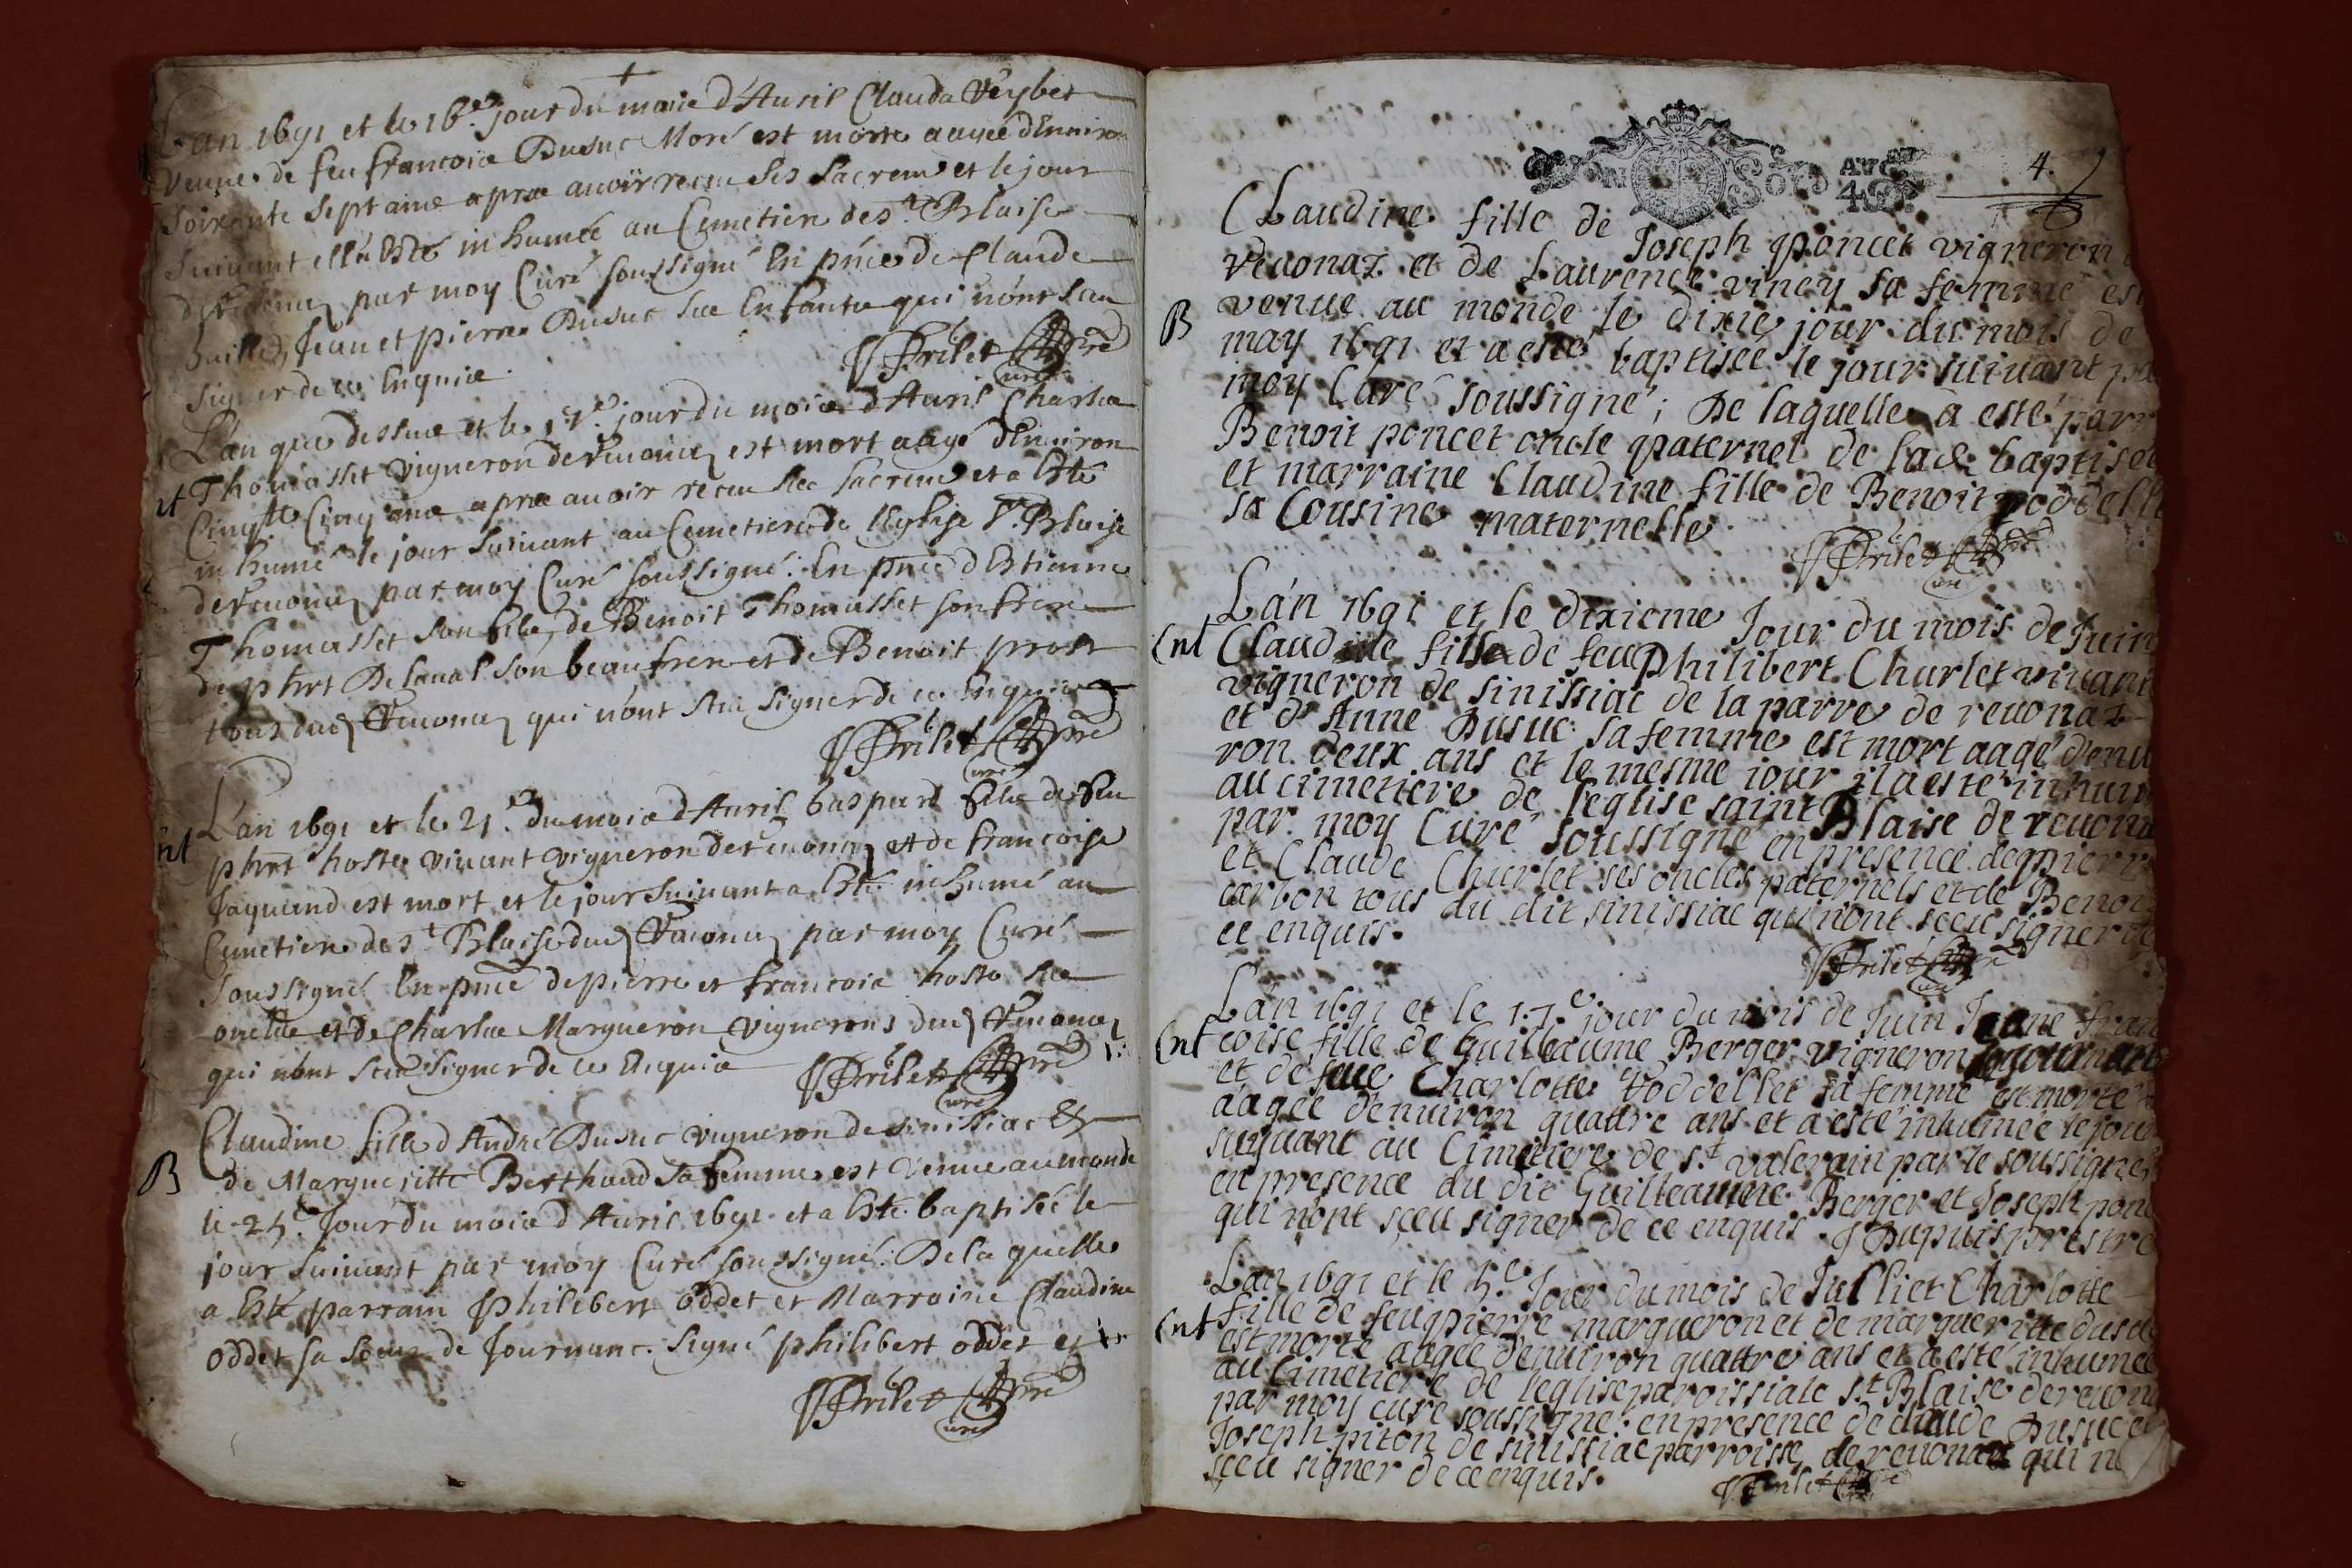 L'an 1691 et le 16e jour du mois d'Auril Clauda Veybet
Veuue de feu francois Dusuc Moré est morte aagée d'Enuiron
soixante sept ans apres auoir receu ses sacremts et le jour
suiuant ella Esté inhumée au Cemetiere de st Blaise
de Reuonas par moy Curé soussigné En pnce de Claude
Jean et pierre Dusuc ses Enfants qui n'ont sceu
signer de ce Enquis.
JTrilet ptre
Curé
L'an que dessus et le 17e jour du mois d'Auril Charles
nt Thomasset vigneron de Reuonas est mort aagé d'Enuiron
Cinqte Cinq ans apres auoir receu ses sacremts et a Esté
inhumé le jour suiuant au Cemetiere de l'Eglise St Blaise
de Reuonas par moy Curé soussigné. En pnce d'Estienne
Thomasset son fils, de Benoit Thomasset son frere
de phrt Delaual son beaufrere et de Benoit prost
tous dud Reuonas qui n'ont sceu signer de ce Enquis
JTrilet ptre
Curé
L'an 1691 et le 21e du mois d'Auril Gaspard fils de feu
nt phrt hoste viuant vigneron de Reuonas et de francoise
Jaquand est mort et le jour suiuant a Esté inhumé au
Cemetiere de st Blaise dud Reuonas par moy Curé
soussigné En pnce de pierre et francois hoste ses
oncles et de Charles Margueron vignerons dud Reuonas
qui n'ont sceu signer de ce Enquis
JTrilet ptre
Curé
Claudine fille d'André Dusuc vigneron de sinissiac et
B de Margueritte Berthaud sa femme est venue au monde
le 25e Jour du mois d'Auril 1691 et a Esté baptisée le
jour suiuant par moy Curé soussigné. De la quelle
a Esté parrain Philibert oddet et Marraine Claudine
oddet sa soeur de Journanc. signé philibert oddet et
JTrilet ptre
Curé
4.
Claudine fille de Joseph poncet vigneron
reuonaz et de Laurence vincy sa femme est
B venue au monde le dixie jour du mois de
may 1691 et a esté baptisée le jour suiuant
moy Curé soussigné; De laquelle a esté
Benoit poncet oncle paternel de lad baptisée
et marraine Claudine fille de Benoit
sa Cousine maternelle.
JTrilet ptre
Curé
L'an 1691 et le dixieme Jour du mois de Juin
Ent Claudine fille de feu Philibert Churlet viuant
vigneron de sinissiac de la parre de reuonaz
et d'Anne Dusuc sa femme est mort aagé d'enui
ron deux ans et le mesme iour il a esté
au cimetiere de l'eglise saint Blaise de
par moy Curé soussigné en presence de
et Claude Churlet ses oncles paternels et de
carbon tous du dit sinissiac qui n'ont sceu signer de
ce enquis.
JTrilet ptre
Curé
L'an 1691 et le 17e jour du mois de Juin Jeane fran
Ent coise fille de Guilleaume Berger vigneron
et de feue Charlotte sa femme est morte
aagée d'enuiron quattre ans et a esté inhumée le jour
suyuant au Cimetiere de st valerain par le soussigné
en presence du dit Guilleaume Berger et Joseph
qui n'ont sceu signer de ce enquis. J Dupuis prestre
L'an 1691 et le 5e Jour du mois de Julliet Charlotte
Ent fille de feu pierre margueron et de margueritte
est morte aagée d'enuiron quattre ans et a esté inhumée
au Cimetiere de l'eglise paroissiale St Blaise de
par moy curé soussigné: en presence de claude Dusuc et
Joseph piton de sinissiac parroisse de reuonas qui
sceu signer de ce enquis.
JTrilet